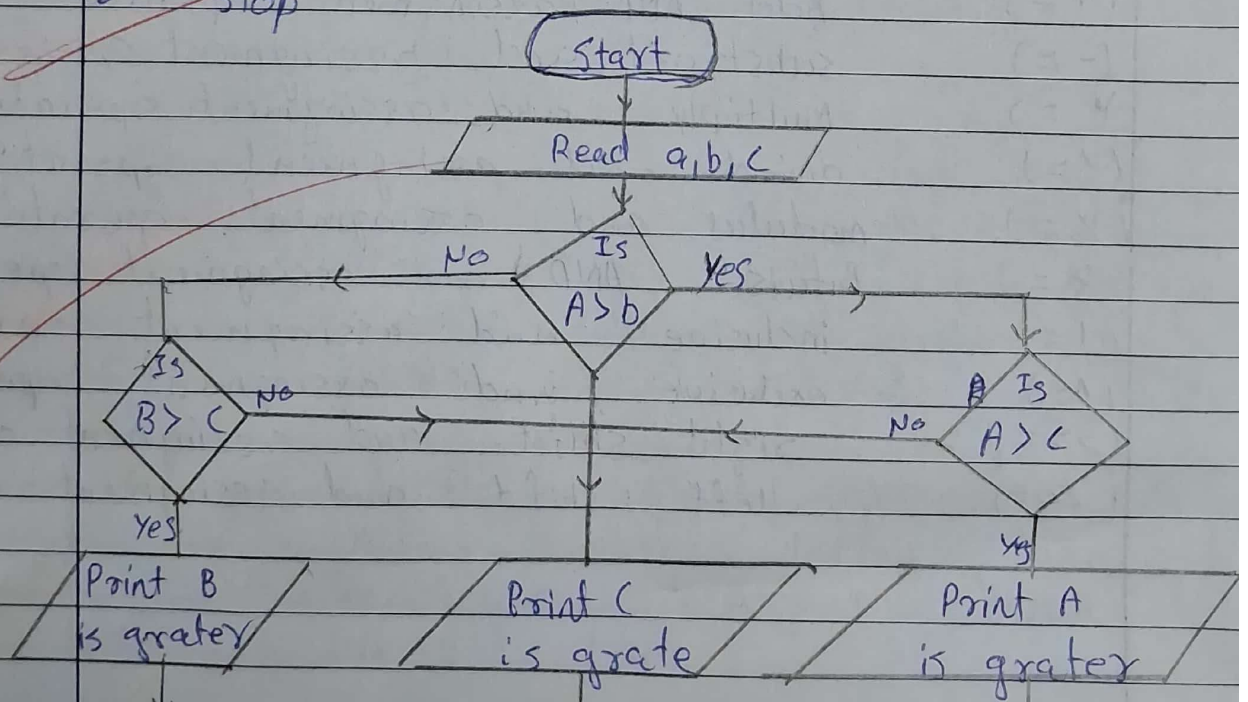 Stop
Start
Read a,b,c
Is
A>b
No
Yes
Is
B> C
No
Is
A > C
No
Yes
Yes
Print B
is grater
Print C
is grate
Print A
is grater